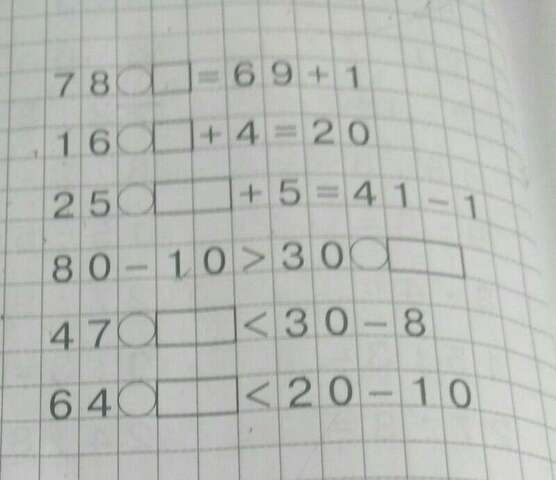 78○□=69+1
16○□+4=20
25○□+5=41-1
80-10>30○□
47○□<30-8
64○□<20-10